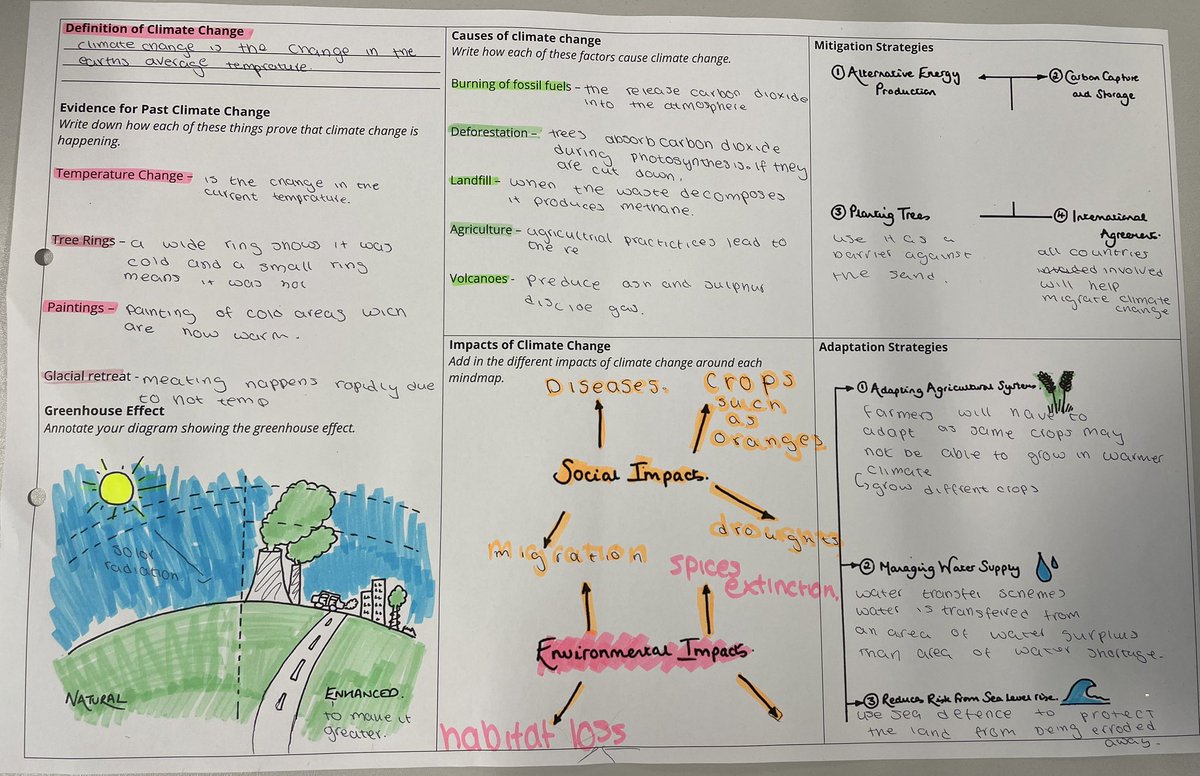 Definition of Climate Change
climate change is the change in the
earths average temprature.
Evidence for Past Climate Change
Write down how each of these things prove that climate change is
happening.
Temperature Change – is the change in the
current temprature.
Tree Rings – a wide ring shows it was
cold and a small ring
means it was hot
Paintings – painting of cold areas wich
are now warm.
Glacial retreat - meating happens rapidly due
to hot temp
Greenhouse Effect
Annotate your diagram showing the greenhouse effect.
solar
radiation
NATURAL
ENHANCED.
to make it
greater.
Causes of climate change
Write how each of these factors cause climate change.
Burning of fossil fuels – the release carbon dioxide
into the atmosphere
Deforestation – trees absorb carbon dioxide
during photosynthesis. If they
are cut down.
Landfill – when the waste decomposes
it produces methane.
Agriculture – agricultrial practictices lead to
the re
Volcanoes - preduce ash and sulphur
discioe gas.
Impacts of Climate Change
Add in the different impacts of climate change around each
mindmap.
Diseases.
crops
such
as
oranges
Social Impacts.
migration
droughts
spices
extinction.
Environmental Impacts.
habitat loss
Mitigation Strategies
① Alternative Energy
Production
② Carbon Capture
and Storage
③ Planting Trees
use it as a
barrier against
the sand.
④ International
Agreement.
all countries
involved
will help
migrate climate
change
Adaptation Strategies
① Adapting Agricultural Systems.
farmers will have to
adapt as some crops may
not be able to grow in warmer
climate
↳ grow diffrent crops
② Managing Water Supply
water transfer schemes
water is transferred from
an area of water surplus
than area of water shortage.
③ Reduces Risk From Sea level rise.
use sea defence to protect
the land from being erroded
away.